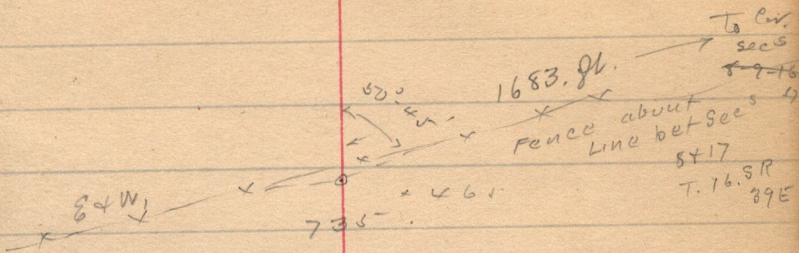 To Cor.
secs
8-9-16
17
1683. ft.
80°45'
Fence about
Line bet Secs
8+17
T. 16. S R
39E
735